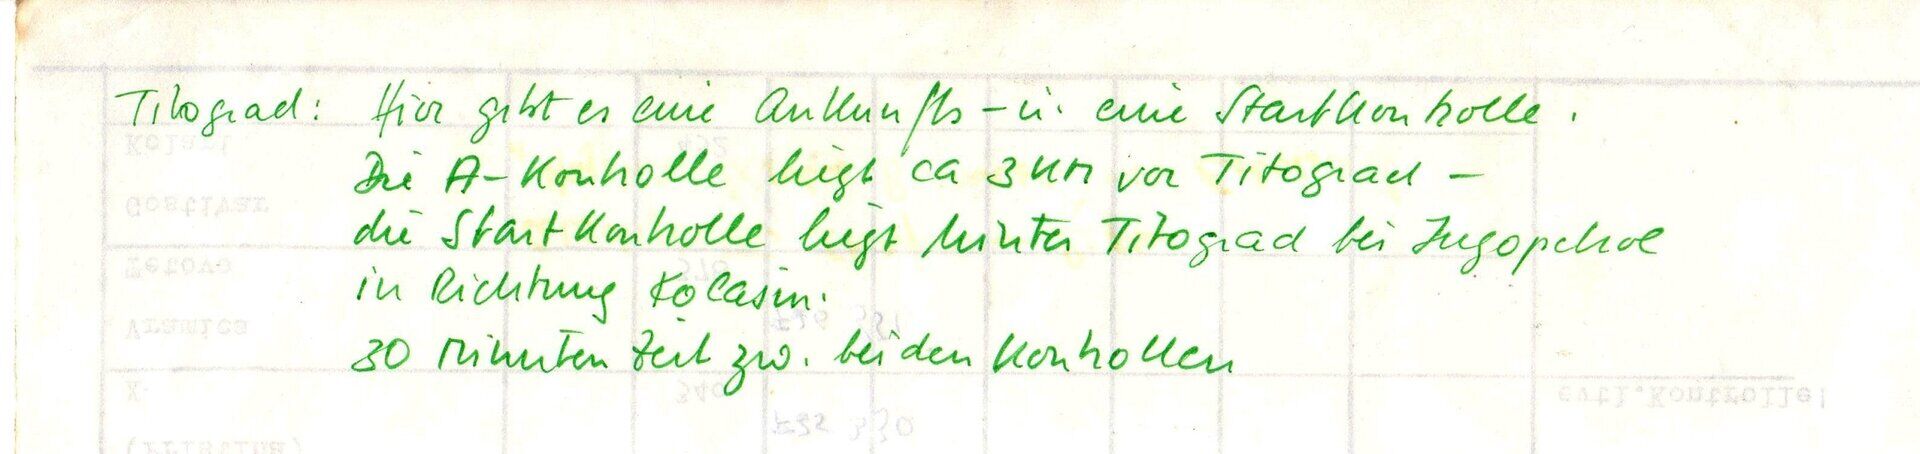 Titograd: Hier gibt es eine Ankunfts- u. eine Startkontrolle.
Die A-Kontrolle liegt ca 3 km vor Titograd -
die Startkontrolle liegt hinter Titograd bei Jugopetrol
in Richtung Kolasin.
30 Minuten Zeit zw. beiden Kontrollen
Kolari
Gostivar
Tetovo
Vranica
(Pristina)
evtl.Kontrolle!